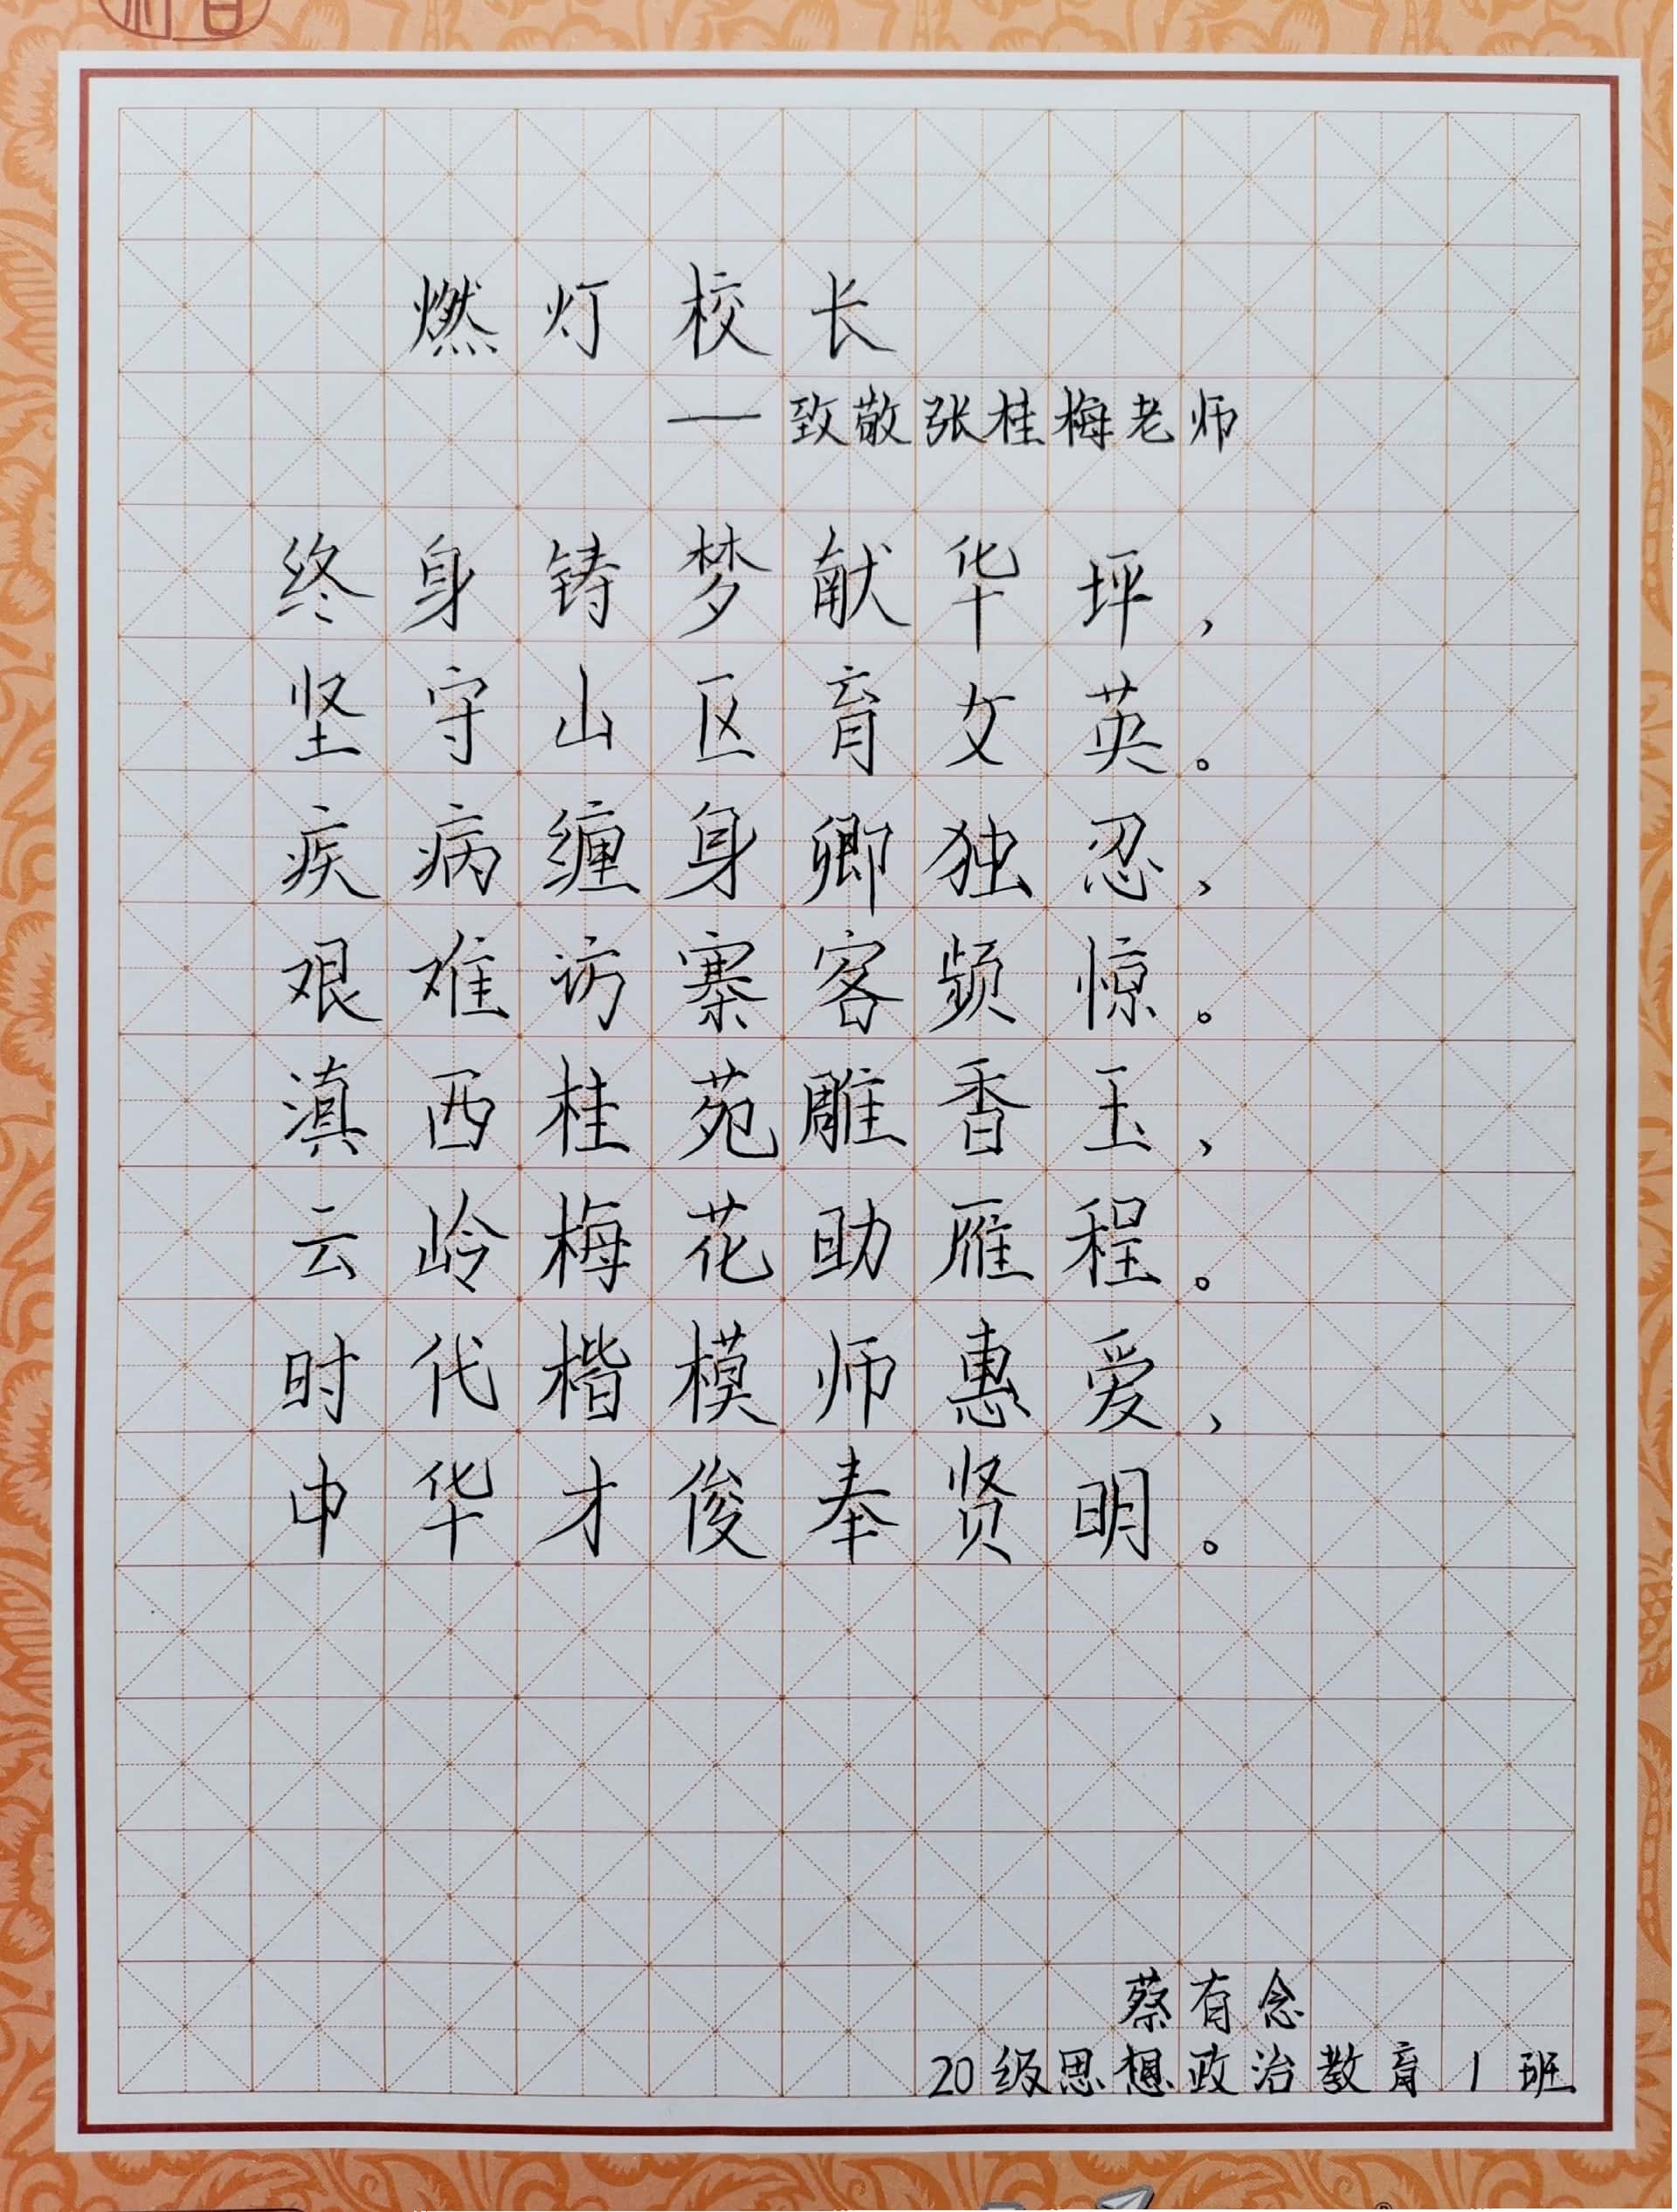 燃灯校长
——致敬张桂梅老师
终身铸梦献华坪，
坚守山区育文英。
疾病缠身卿独忍，
艰难访寨客频惊。
滇西桂苑雕香玉，
云岭梅花助雁程。
时代楷模师惠爱，
中华才俊奉贤明。
蔡有念
20级思想政治教育1班